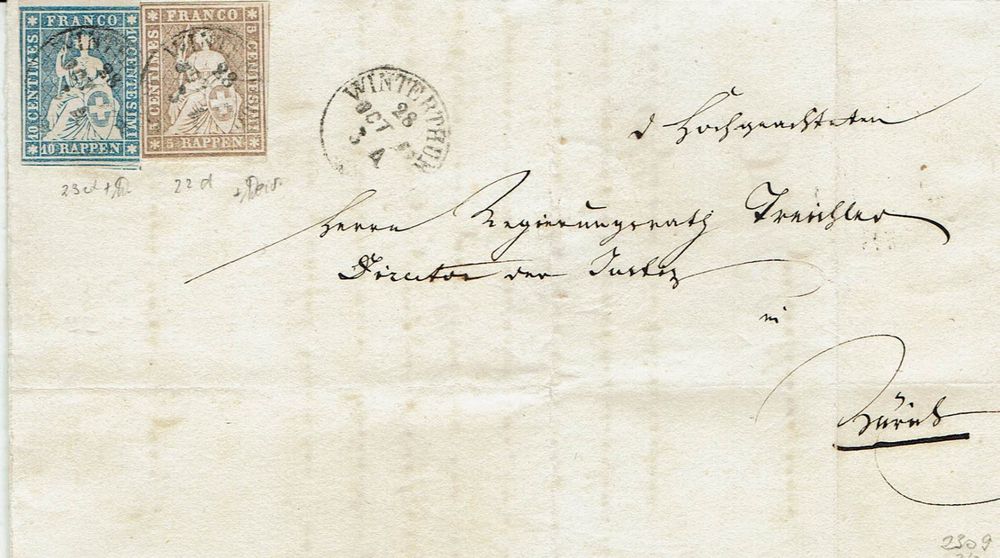 FRANCO
10 CENTIMES
10 CENTESIMI
10 RAPPEN
FRANCO
5 CENTIMES
5 CENTESIMI
5 RAPPEN
WINTERTHUR
28
OCT
3 A
23 22 d
d Hochgeachteten
Herrn Regierungsrath Treichler
Director der Justiz
in
Zürich
2309